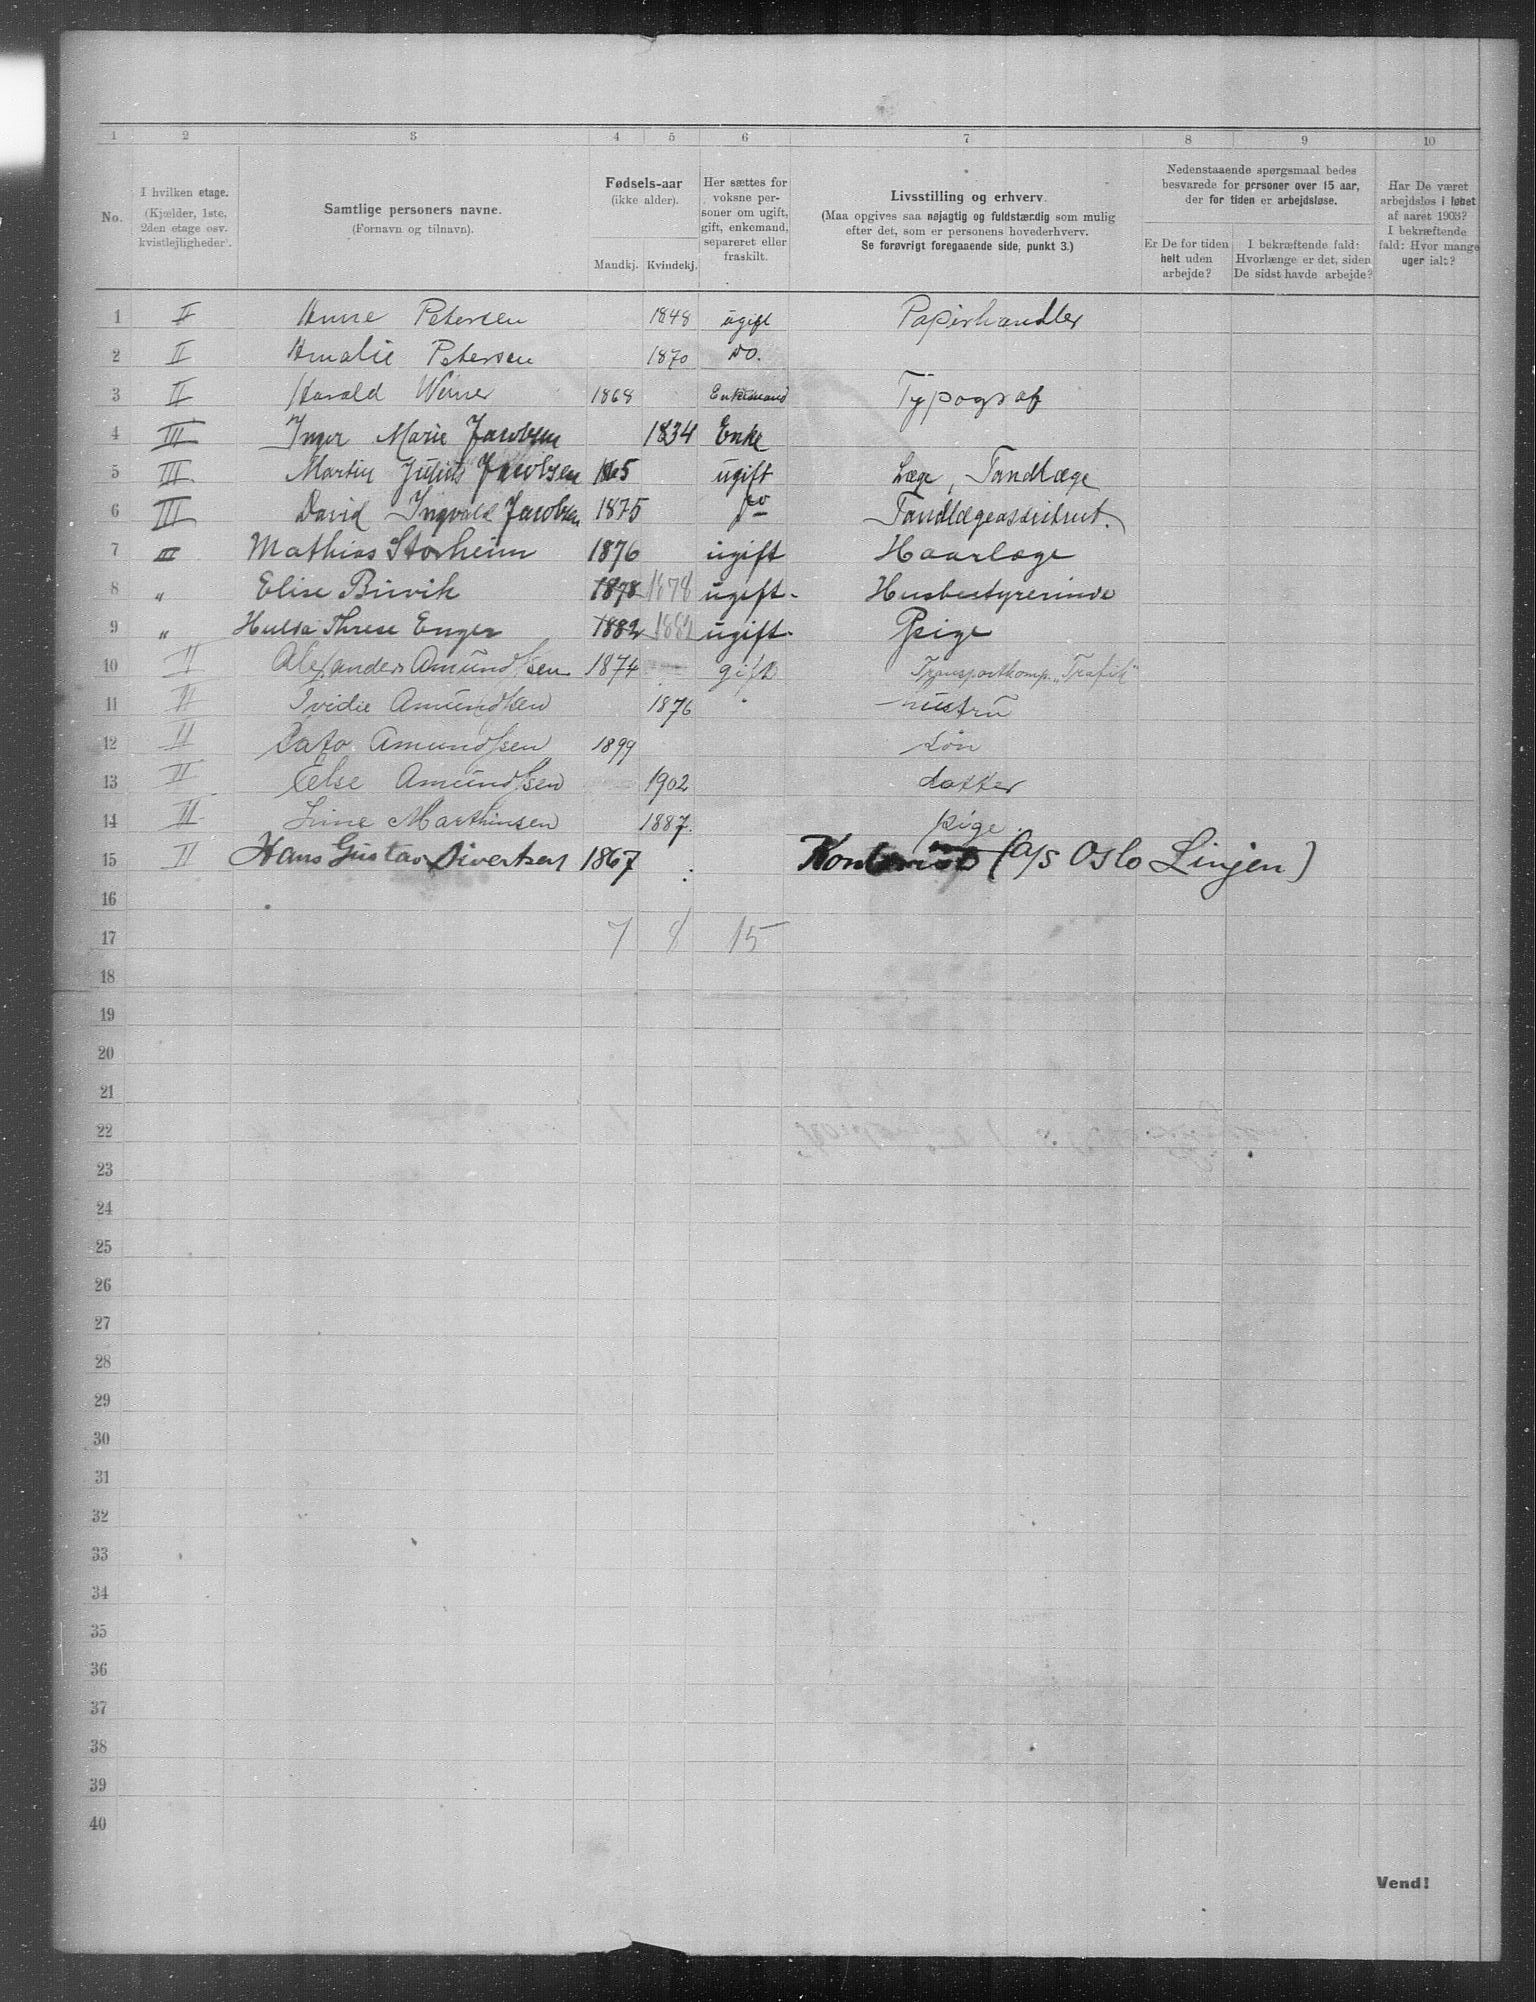 1 2 3 4 5 6 7 8 9 10
No.
I hvilken etage.
(Kjælder, 1ste,
2den etage osv.
kvistlejligheder).
Samtlige personers navne.
(Fornavn og tilnavn).
Fødsels-aar
(ikke alder).
Mandkj. Kvindekj.
Her sættes for
voksne per-
soner om ugift,
gift, enkemand,
separeret eller
fraskilt.
Livsstilling og erhverv.
(Maa opgives saa nøjagtig og fuldstændig som mulig
efter det, som er personens hovederhverv.
Se forøvrigt foregaaende side, punkt 3.)
Nedenstaaende spørgsmaal bedes
besvarede for personer over 15 aar,
der for tiden er arbejdsløse.
Er De for tiden
helt uden
arbejde?
I bekræftende fald:
Hvorlænge er det, siden
De sidst havde arbejde?
Har De været
arbejdsløs i løbet
af aaret 1903?
I bekræftende
fald: Hvor mange
uger ialt?
1 II Anne Petersen 1848 ugift Papirhandler
2 II Amalie Petersen 1870 do.
3 II Harald Weiner 1868 Enkemand Typograf
4 III Inger Marie Jacobsen 1834 Enke
5 III Martin Julius Jacobsen 1865 ugift Læge, Tandlæge
6 III David Ingvald Jacobsen 1875 do Tandlægeassistent.
7 III Mathias Storheim 1876 ugift Haarlæge
8 " Elise Birvik 1878 1878 ugift. Husbestyrerinde
9 " Hulda Threse Enger 1882 1882 ugift. Pige
10 II Alexander Amundssen 1874 gift Transportkomp. "Trafik"
11 II Ividie Amundssen 1876 " hustru
12 II Cato Amundssen 1899 søn
13 II Else Amundssen 1902 datter
14 II Line Marthinsen 1887. pige.
15 II Hans Gustav Sivertsen 1867 Kontorist (A/S Oslo Linjen)
16
17 7 8 15
18
19
20
21
22
23
24
25
26
27
28
29
30
31
32
33
34
35
36
37
38
39
40
Vend!